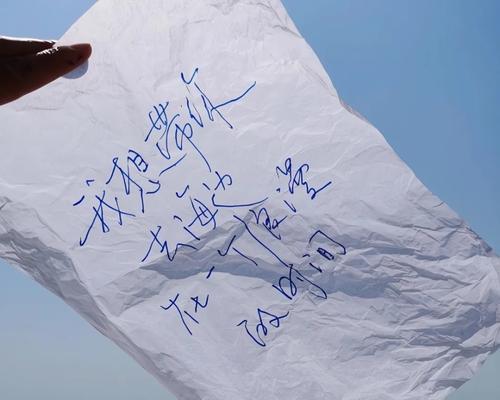 我想带你
去海边
在一个浪漫
的时间